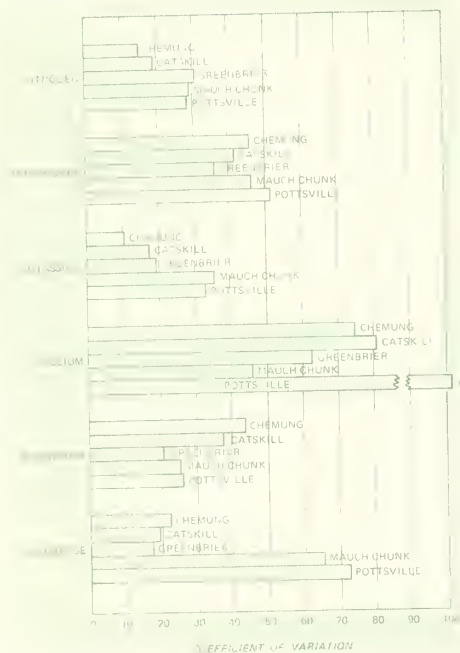 HEMUNG
CATSKILL
GREENBRIER
MAUCH CHUNK
POTTSVILLE
CHEMUNG
CATSKILL
REENBRIER
MAUCH CHUNK
POTTSVILLE
CHEMUNG
CATSKILL
GREENBRIER
MAUCH CHUNK
POTTSVILLE
CHEMUNG
CATSKILL
GREENBRIER
MAUCH CHUNK
POTTSVILLE
CHEMUNG
CATSKILL
MAUCH CHUNK
POTTSVILLE
CHEMUNG
CATSKILL
GREENBRIER
MAUCH CHUNK
POTTSVILLE
0 10 20 30 40 50 60 70 80 90 100
OF VARIATION